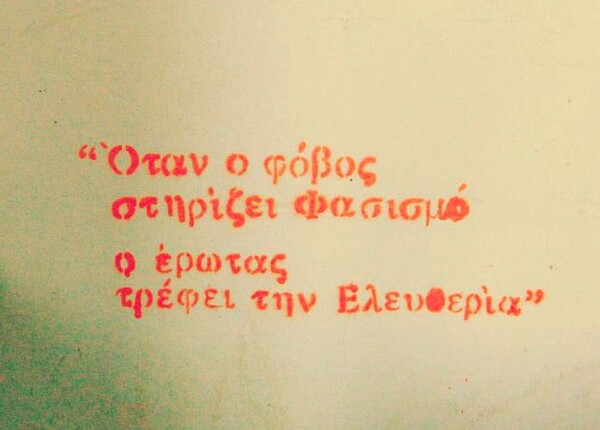 “Όταν ο φόβος
στηρίζει Φασισμό
ο έρωτας
τρέφει την Ελευθερία”